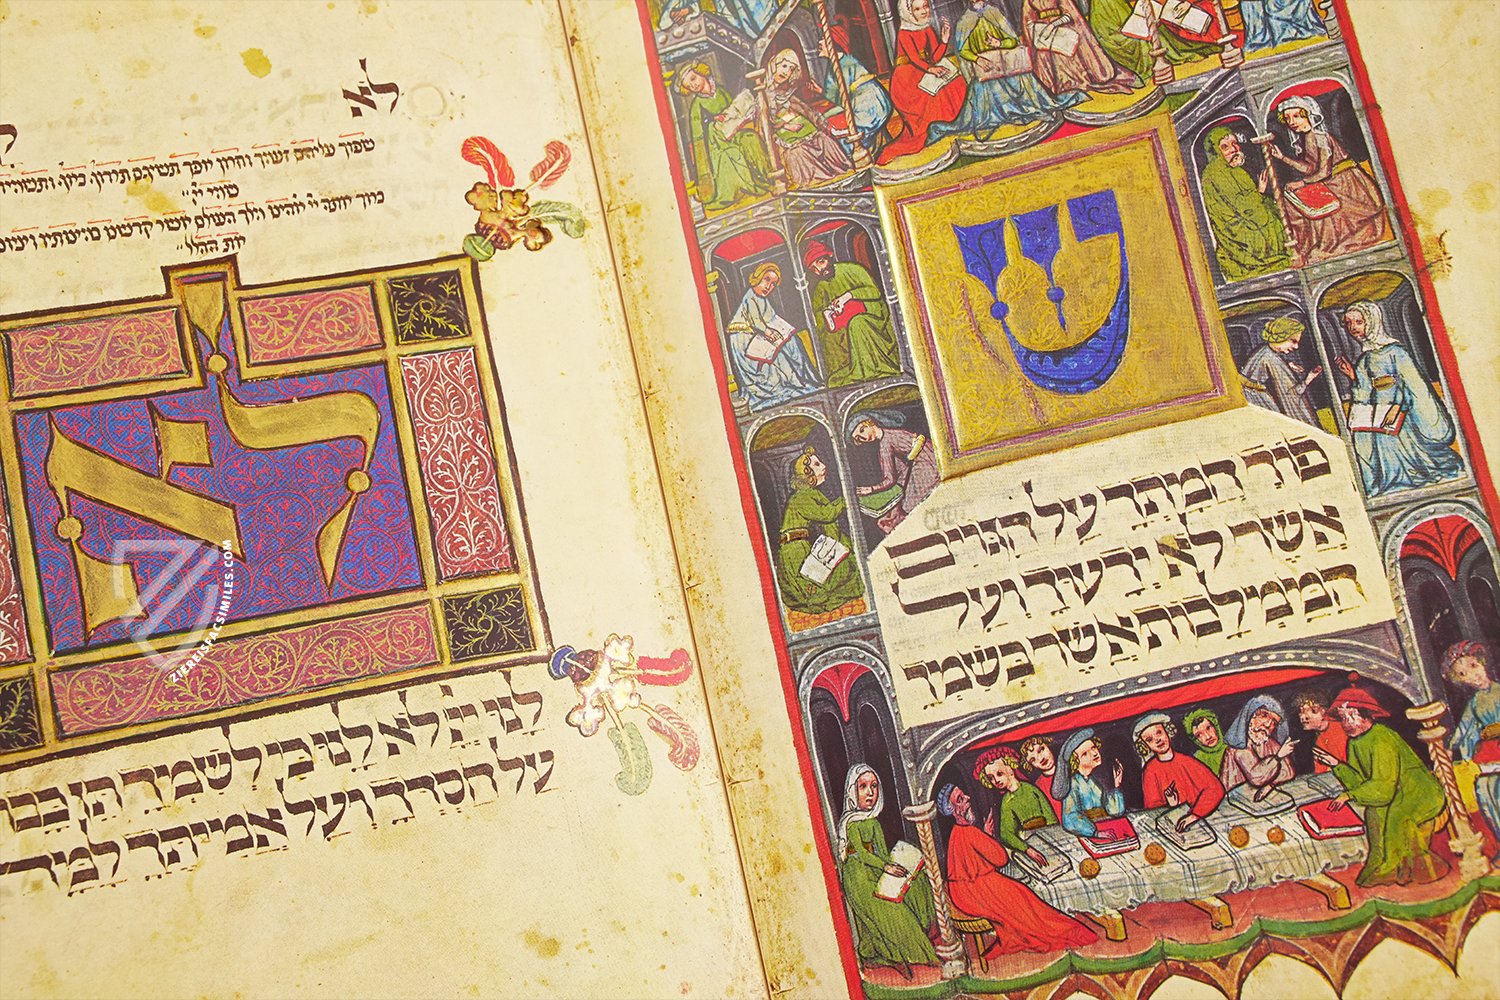 ש
פוך חמתך על הגוים
אשר לא ידעוך ועל
הממלכות אשר בשמך
לא
שפוך עליהם זעמך וחרון
לא
לנו יי לא לנו כי לשמך תן
על חסדך ועל אמיתך למה
ZIEREISFACSIMILES.COM